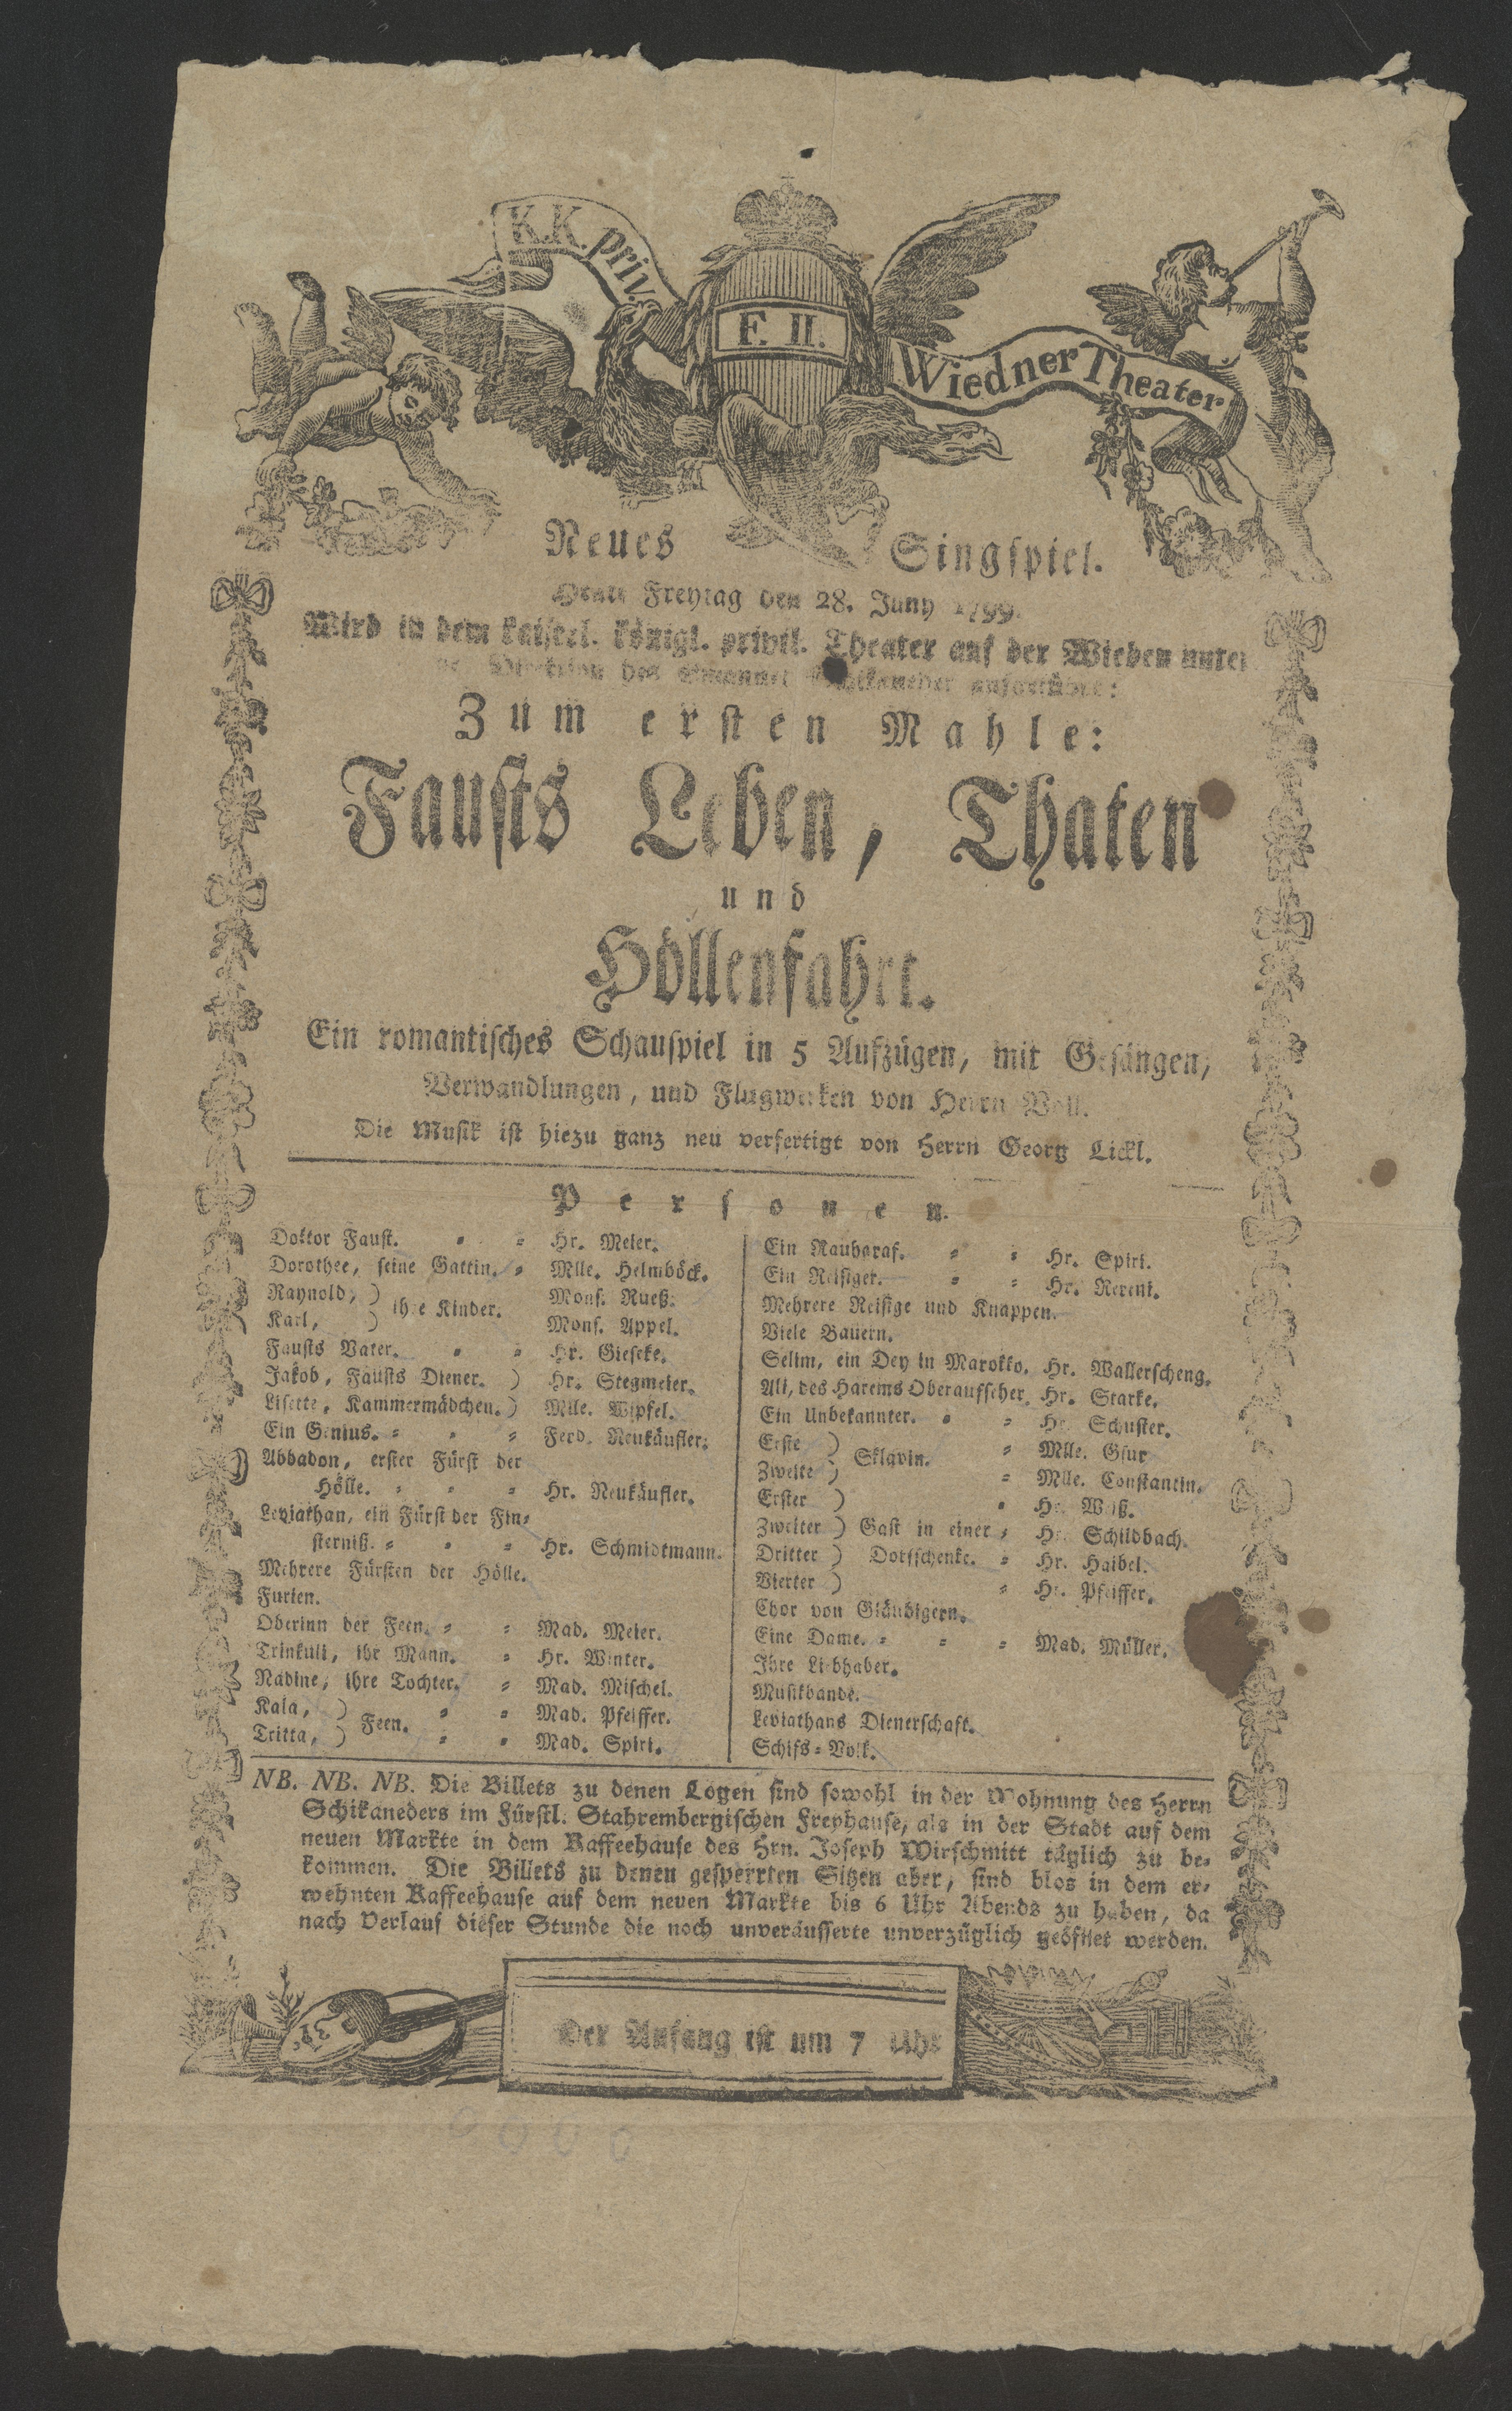 K.K. priv.
F. II.
Wiedner Theater
Neues Singspiel.
Heute Freytag den 28. Juny 1799.
Wird in dem kaiserl. königl. privil. Theater auf der Wieden unter
der Direktion des Emanuel Schikaneder aufgeführt:
Zum ersten Mahle:
Fausts Leben, Thaten
und
Höllenfahrt.
Ein romantisches Schauspiel in 5 Aufzügen, mit Gesängen,
Verwandlungen, und Flugwerken von Herrn Voll.
Die Musik ist hiezu ganz neu verfertigt von Herrn Georg Lickl.
Personen.
Doktor Faust. = = Hr. Meier.
Dorothee, seine Gattin. = Mlle. Helmböck.
Raynold, ) Mons. Rueß.
ihre Kinder.
Karl, ) Mons. Appel.
Fausts Vater. = = Hr. Gieseke.
Jakob, Fausts Diener. ) Hr. Stegmeier.
Lisette, Kammermädchen. ) Mlle. Wipfel.
Ein Genius. = = = Ferd. Neukäufler.
Abbadon, erster Fürst der
Hölle. = = = Hr. Neukäufler.
Leviathan, ein Fürst der Fin=
sterniß. = = = Hr. Schmidtmann.
Mehrere Fürsten der Hölle.
Furien.
Oberinn der Feen. = = Mad. Meier.
Trinkuli, ihr Mann. = Hr. Winter.
Nadine, ihre Tochter. = Mad. Mischel.
Kala, ) = = Mad. Pfeiffer.
Feen.
Tritta, ) = = Mad. Spiri.
Ein Raubgraf. = = Hr. Spiri.
Ein Reisiger. = = Hr. Rereni.
Mehrere Reisige und Knappen.
Viele Bauern.
Selim, ein Dey in Marokko. Hr. Wallerscheng.
Ali, des Harems Oberaufseher. Hr. Starke.
Ein Unbekannter. = = Hr. Schuster.
Erste ) = Mlle. Gsur
Sklavin.
Zweite ) = Mlle. Constantin.
Erster ) = Hr. Weiß.
Zweiter ) Gast in einer = Hr. Schildbach.
Dritter ) Dorfschenke. = Hr. Haibel.
Vierter ) = Hr. Pfeiffer.
Chor von Gläubigern.
Eine Dame. = = = Mad. Müller.
Ihre Liebhaber.
Musikbande.
Leviathans Dienerschaft.
Schifs=Volk.
NB. NB. NB. Die Billets zu denen Logen sind sowohl in der Wohnung des Herrn
Schikaneders im Fürstl. Stahrembergischen Freyhause, als in der Stadt auf dem
neuen Markte in dem Kaffeehause des Hrn. Joseph Wirschmitt täglich zu be=
kommen. Die Billets zu denen gesperrten Sitzen aber, sind blos in dem er=
wehnten Kaffeehause auf dem neuen Markte bis 6 Uhr Abends zu haben, da
nach Verlauf dieser Stunde die noch unveräusserte unverzüglich geöffnet werden.
Der Anfang ist um 7 Uhr